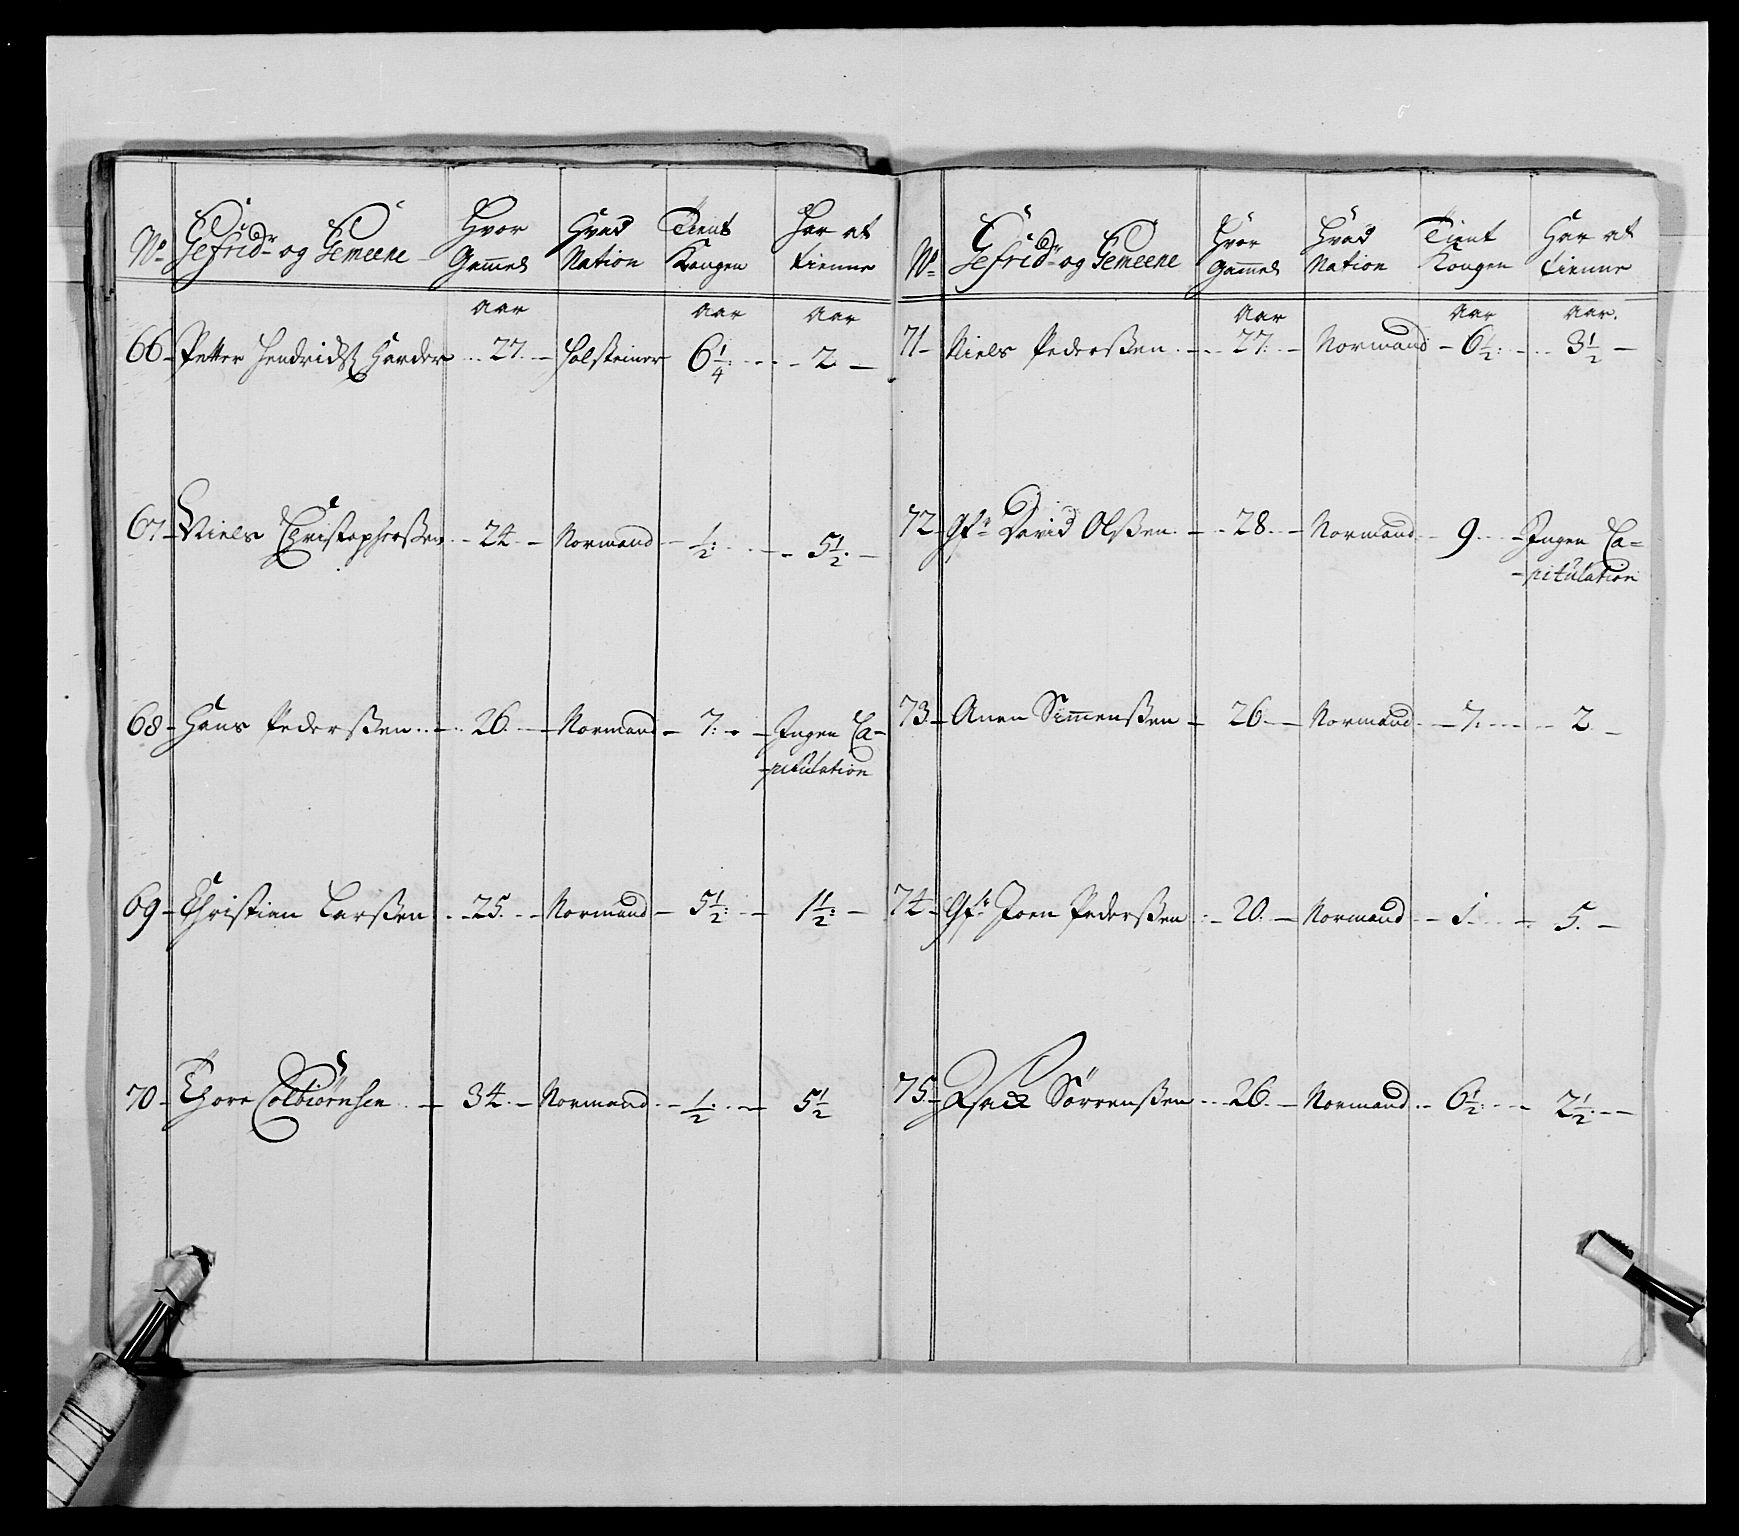 No Gefridr og Gemeene Hvor Gammel Hvad Nation Tient Kongen Har at tienne
Aar Aar Aar
66 Petter Hendrichs Harder 27. Holsteiner 6 1/4 2
67 Niels Christophersßen 24 Normand 1/2 5 1/2
68 Hans Pedersßen 26 Normand 7 Ingen Ca-
-pitulation
69 Christian Larsßen 25 Normand 5 1/2 1 1/2
70 Thore Colbiørnsen 34 Normand 1/2 5 1/2
No Gefridr og Gemeene Hvor Gammel Hvad Nation Tient Kongen Har at tienne
Aar Aar Aar
71 Niels Pedersßen 27 Normand 6 1/2 3 1/2
72 Gfr David Olsßen 28 Normand 9 Ingen Ca=
-pitulation
73 Anen Simmensßen 26 Normand 7 2
74 Gfr Joen Pedersßen 20 Normand 1 5
75 Sørrensßen 26 Normand 6 1/2 2 1/2